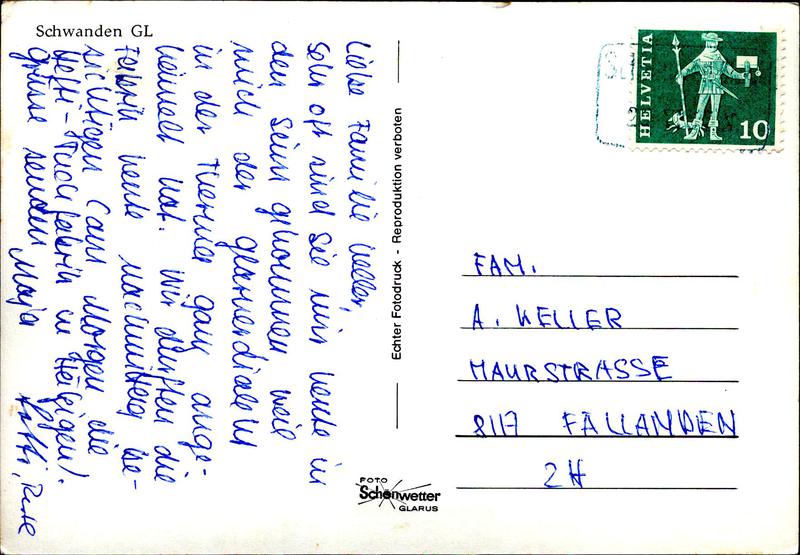 Schwanden GL
Liebe Familie Keller,
Sehr oft sind Sie mir heute in
den Sinn gekommen weil
mich der Glarnerdialekt
in der Therma ganz ange-
heimelt hat. Wir durften die
Fabrik heute Nachmittag be-
sichtigen (am Morgen die
Hefti-Tuchfabrik in Hätzigen).
Grüsse senden Maja
Echter Fotodruck - Reproduktion verboten
FOTO
Schönwetter
GLARUS
HELVETIA
10
FAM.
A. KELLER
MAURSTRASSE
8117 FÄLLANDEN
ZH